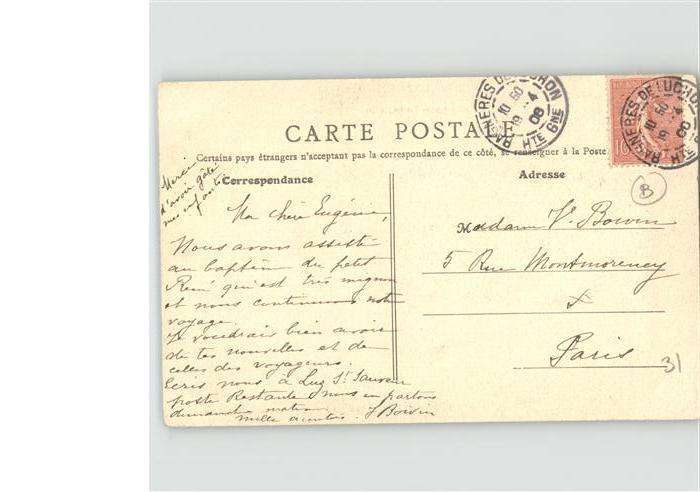 CARTE POSTALE
Certains pays étrangers n'acceptant pas la correspondance de ce côté, se renseigner à la Poste
Correspondance
Adresse
BAGNERES DE LUCHON
10 50
19 -4
08
HTE GNE
BAGNERES DE LUCHON
10 50
19 -4
08
HTE
B
Merci
d'avoir gâté
mes enfants
Ma chère Eugénie,
Nous avons assisté
au baptême du petit
René qui est très mignon
et nous continuons notre
voyage.
Je voudrais bien avoir
de tes nouvelles et de
celles des voyageurs.
Ecris nous à Luz St Sauveur
poste Restante nous en partons
dimanche matin
mille amitiés. J Boivin
Madame V. Boivin
5 Rue Montmorency
Paris
31